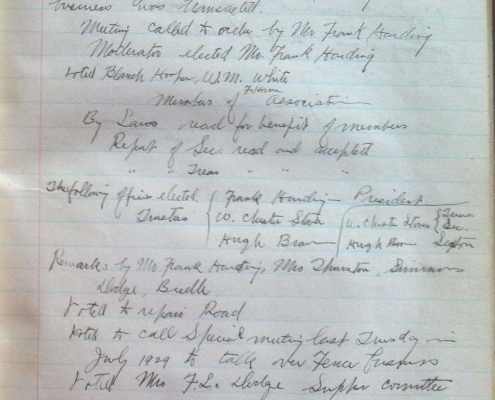 business was transacted.
Meeting called to order by Mr Frank Harding
Moderator elected Mr. Frank Harding
Voted Blanch Hooper, W.M. White
Members of Association
By Laws read for benefit of members
Report of Sec. read and
" " Treas " " "
The following officers elected. Frank Harding President
Trustees W. Chester Stover W. Chester Stover Sec.
Hugh Brown Hugh Brown Sexton
Remarks by Mr. Frank Harding, Mrs Thurston, Simmons
Dodge,
Voted to repair Road
Voted to call Special meeting last Tuesday in
July 1929 to talk over Fence business
Voted Mrs F.L. Dodge Supper comittee